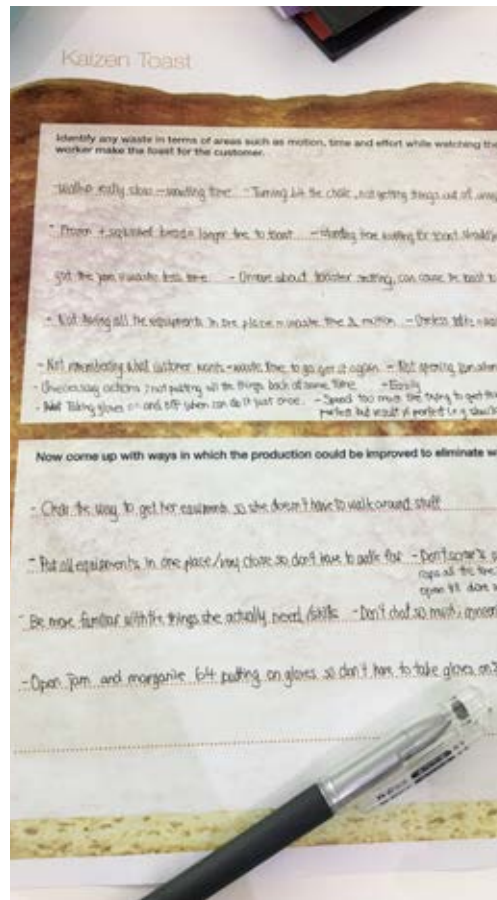 Kaizen Toast
Identify any waste in terms of areas such as motion, time and effort while watching the
worker make the toast for the customer.
- Walks really slow - wasting time - Turning b4 the chair, not getting things out of way
- Frozen + squished bread = longer time to toast - time waiting for toast should
got the jam = waste less time - Unsure about toaster setting, can cause the toast to
- Not having all the equipments in one place = waste time & motion - Useless talks = was
- Not remembering what customer wants - waste time to go get it again - Not opening jam when
- Unnecessary actions: not putting all the things back at same time - Easily
- Taking gloves on and off when can do it just once. - Spend too much time trying to get th
perfect but result is perfect (e.g. should
Now come up with ways in which the production could be improved to eliminate w
- Clear the way to get her equipments so she doesn't have to walk around stuff
- Put all equipments in one place/very close so don't have to walk far - Don't
caps all the time
open till done
- Be more familiar with the things she actually need/skills - Don't chat so much,
- Open jam and margarine b4 putting on gloves so don't have to take gloves on